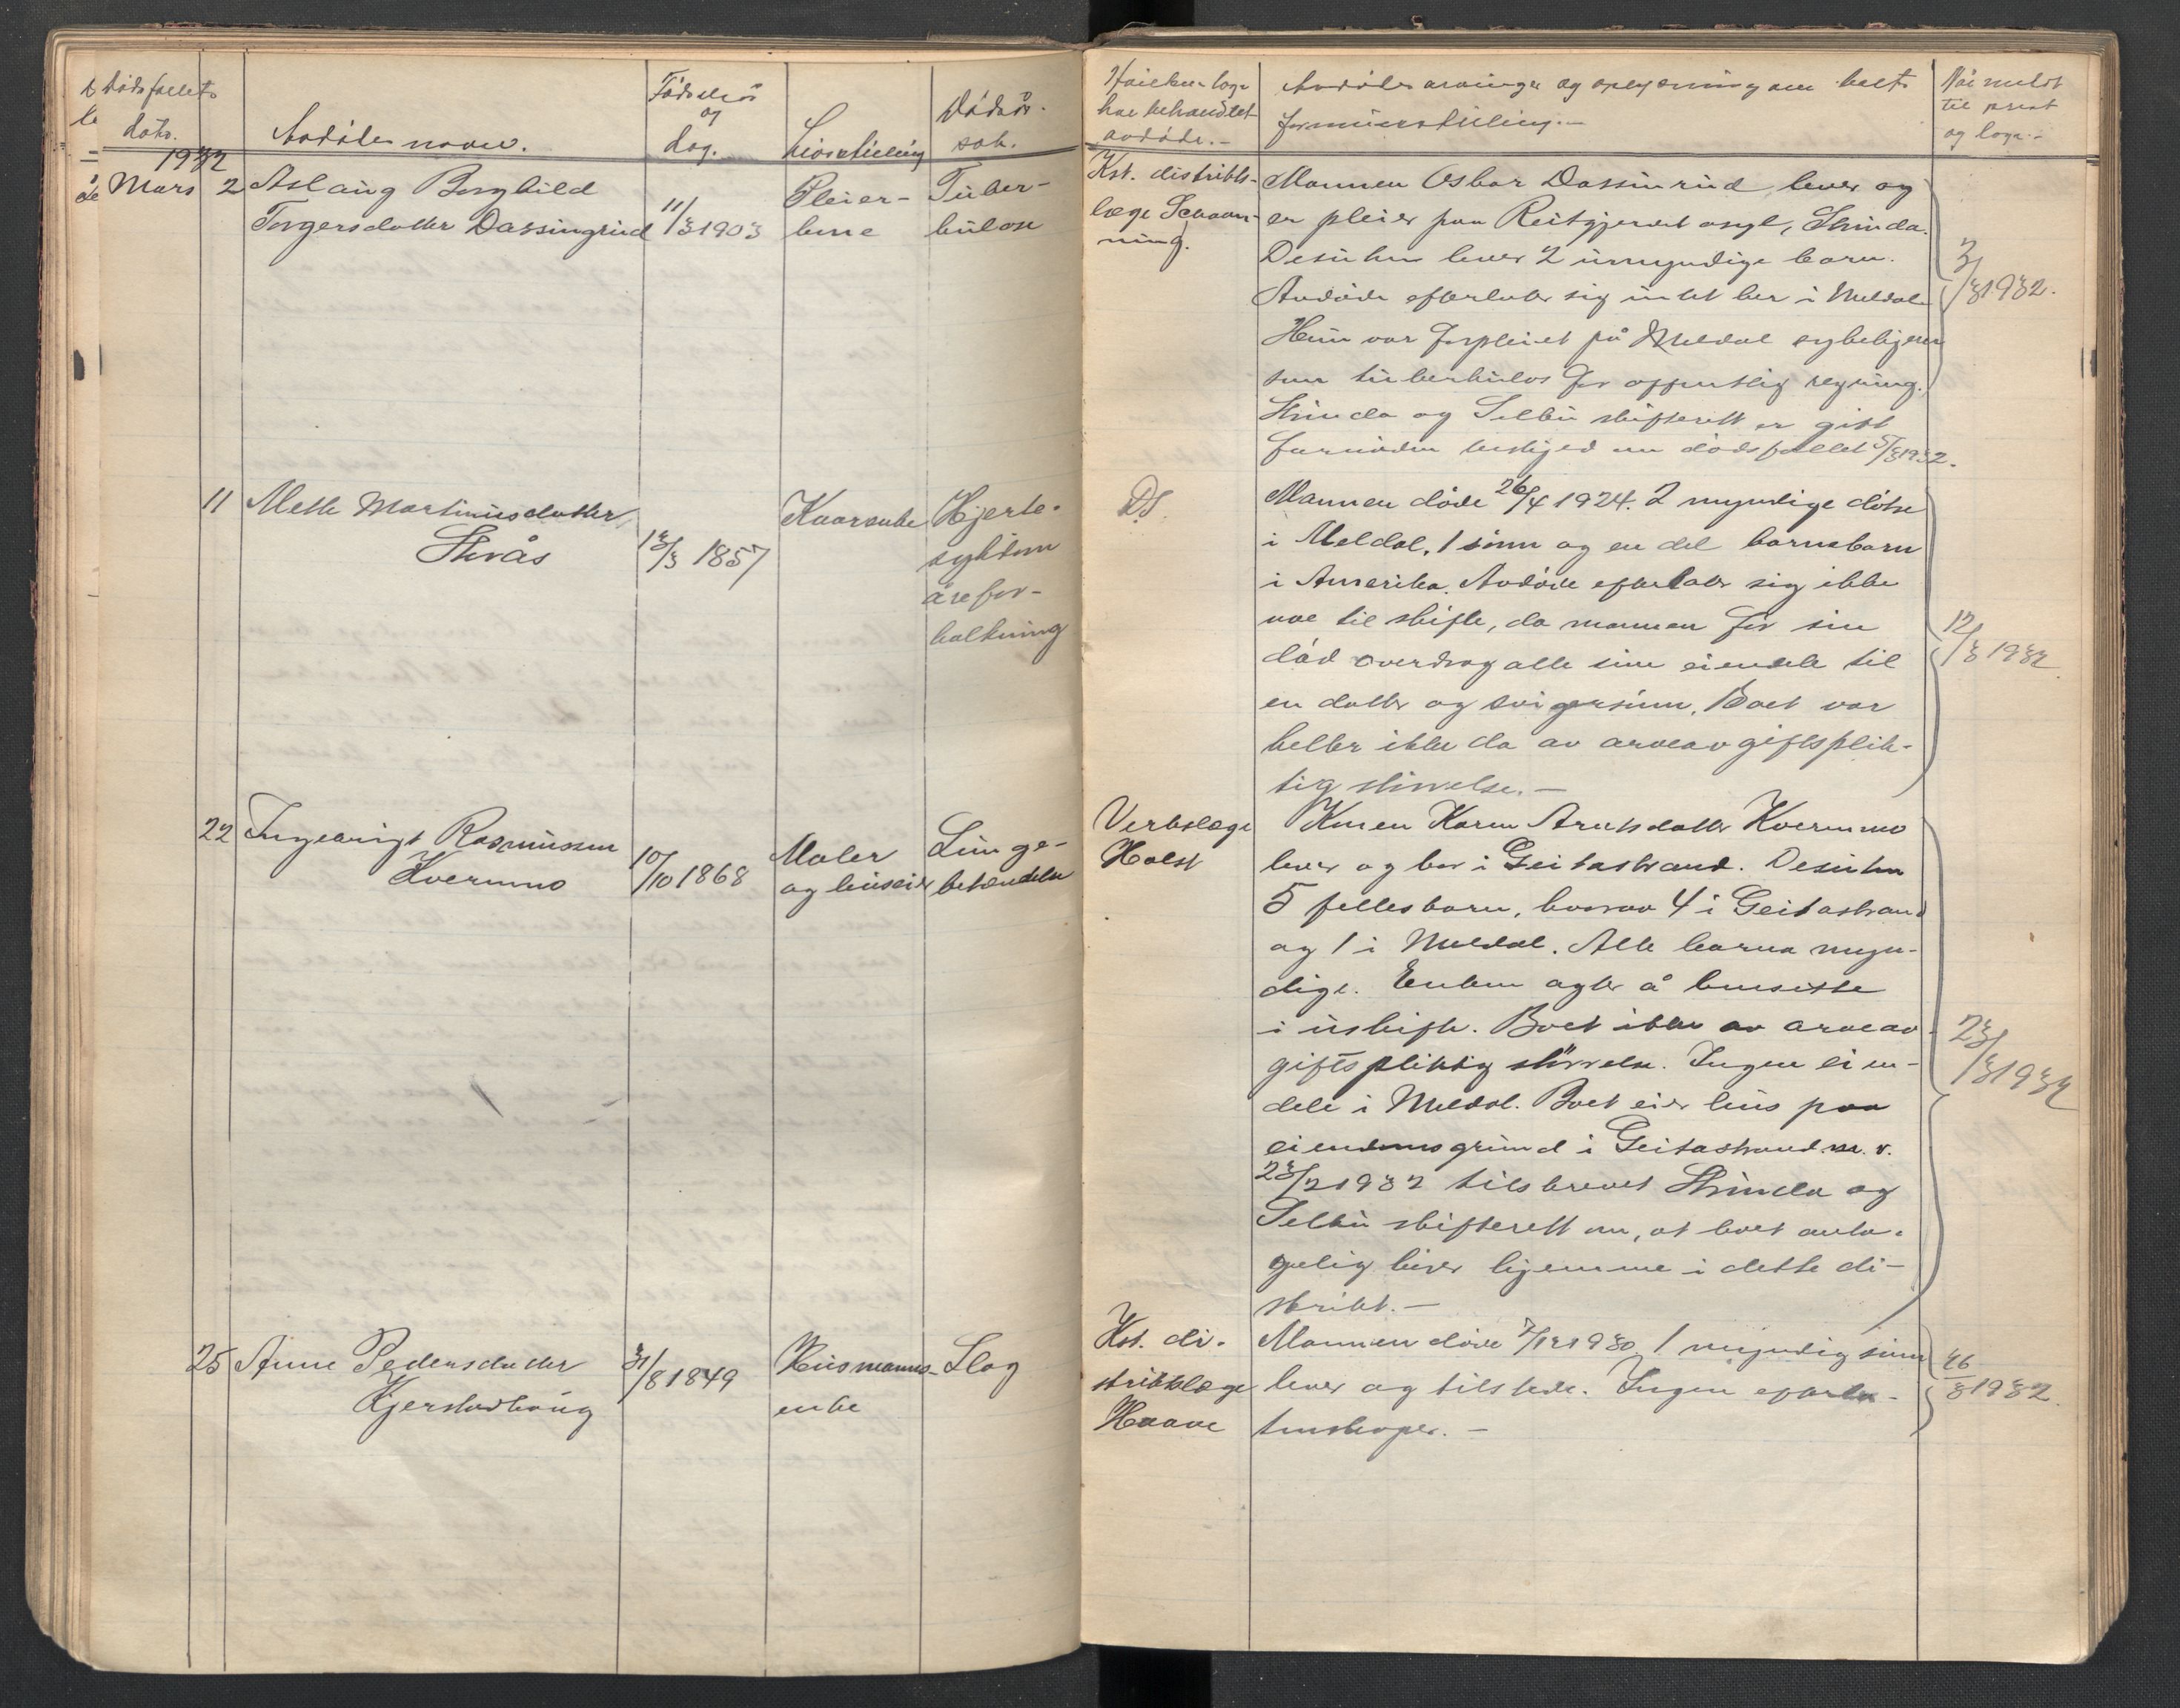 Dødsfallets
dato.
Avdødes navn.
Fødselsår
og
dag.
Livsstilling
Dødsår-
sak.
Hvilken læge
har behandlet
avdøde.-
Avdødes arvinger og oplysning om bets
formuesstilling.-
Når meldt
til prest
og læge.-
1932
Mars 2
Aslaug Borghild
Torgersdatter Dassingrud
11/3 1903
Pleier-
ske
Tuber-
kulose
Kst. distrikts-
læge Schaan-
ning.
Mannen Oskar Dassinrud lever og
er pleier paa Reitgjerdet asyl, Strinda.
Desuten lever 2 umyndige barn.
Avdøde efterlater sig intet her i Meldal.
Hun var forpleiet på Meldal sykehjem
som tuberkuløs for offentlig regning.
Strinda og Selbu skifterett er gitt
fornøden beskjed om dødsfallet 5/3 1932.
3/3 1932.
11
Mette Martinusdatter
Skrås
13/3 1857
Kaarenke
Hjerte-
sykdom
årefor-
kalkning
DS.
Mannen døde 26/4 1924. 2 myndige døtre
i Meldal, 1 sønn og en del barnebarn
i Amerika. Avdøde efterlater sig ikke
noe til skifte, da mannen før sin
død overdrog alle sine eiendele til
en datter og svigersønn. Boet var
heller ikke da av arveavgiftsplik-
tig størrelse.-
12/3 1932
22
Ingebrigt Rasmussen
Kvernmo
10/10 1868
Maler
og huseier
Lunge-
betændelse
Verkslæge
Holst
Konen Karen Arntsdatter Kvernmo
lever og bor i Geitastrand. Desuten
5 fellesbarn, hvorav 4 i Geitastrand
og 1 i Meldal. Alle barna myn-
dige. Enken agter å hensitte
i uskifte. Boet ikke av arveav-
giftspliktig størrelse. Ingen eien-
dele i Meldal. Boet eier hus paa
eiendomsgrund i Geitastrand m. v.
23/3 1932 tilskrevet Strinda og
Selbu skifterett om, at boet anta-
gelig hører hjemme i dette di-
strikt.-
23/3 1932
25
Anne Pedersdatter
Kjerstadhaug
31/8 1849
Husmanns-
enke
Slag
Kst. di-
striktslæge
Haave
Mannen døde 7/12 1930. 1 myndig sønn
lever og tilstede. Ingen efterla-
tenskaper.-
26/3 1932.